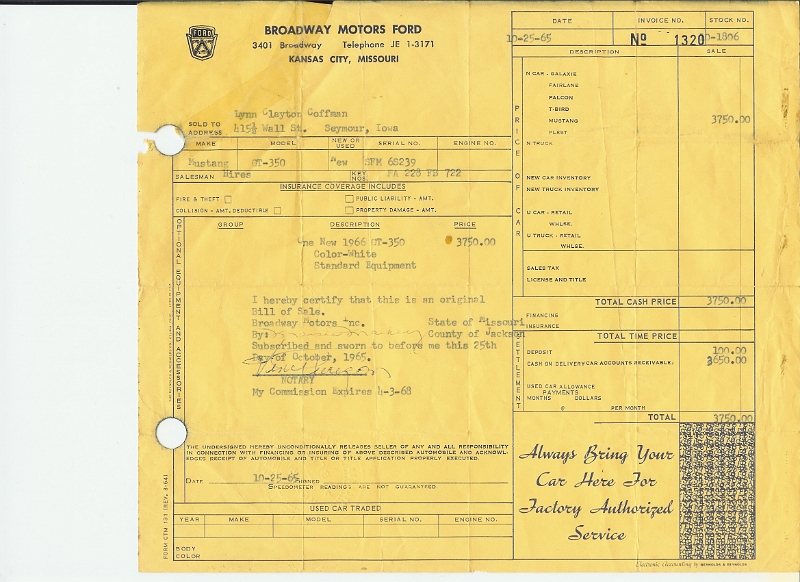 FORD
BROADWAY MOTORS FORD
3401 Broadway Telephone JE 1-3171
KANSAS CITY, MISSOURI
DATE INVOICE NO. STOCK NO.
10-25-65 No 1320 D-1806
DESCRIPTION SALE
SOLD TO Lynn Clayton Coffman
ADDRESS 415½ Wall St. Seymour, Iowa
MAKE MODEL NEW OR USED SERIAL NO. ENGINE NO.
Mustang GT-350 New SFM 6S239
SALESMAN Hires KEY NOS. FA 228 FB 722
INSURANCE COVERAGE INCLUDES
FIRE & THEFT PUBLIC LIABILITY - AMT.
COLLISION - AMT. DEDUCTIBLE PROPERTY DAMAGE - AMT.
GROUP DESCRIPTION PRICE
One New 1966 GT-350 3750.00
Color-White
Standard Equipment
I hereby certify that this is an original
Bill of Sale.
Broadway Motors Inc. State of Missouri
By: County of Jackson
Subscribed and sworn to before me this 25th
Day of October, 1965.
NOTARY
My Commission Expires 4-3-68
OPTIONAL EQUIPMENT AND ACCESSORIES
THE UNDERSIGNED HEREBY UNCONDITIONALLY RELEASES SELLER OF ANY AND ALL RESPONSIBILITY
IN CONNECTION WITH FINANCING OR INSURING OF ABOVE DESCRIBED AUTOMOBILE AND ACKNOWL-
EDGES RECEIPT OF AUTOMOBILE AND TITLE OR TITLE APPLICATION PROPERLY EXECUTED.
DATE 10-25-65 SIGNED
SPEEDOMETER READINGS ARE NOT GUARANTEED.
USED CAR TRADED
YEAR MAKE MODEL SERIAL NO. ENGINE NO.
BODY
COLOR
FORM CTM 131 (REV. 8-64)
PRICE OF CAR
N CAR - GALAXIE
FAIRLANE
FALCON
T-BIRD
MUSTANG 3750.00
FLEET
N TRUCK
NEW CAR INVENTORY
NEW TRUCK INVENTORY
U CAR - RETAIL
WHLSE.
U TRUCK - RETAIL
WHLSE.
SALES TAX
LICENSE AND TITLE
TOTAL CASH PRICE 3750.00
FINANCING
INSURANCE
TOTAL TIME PRICE
SETTLEMENT
DEPOSIT 100.00
CASH ON DELIVERY CAR ACCOUNTS RECEIVABLE: 3650.00
USED CAR ALLOWANCE
PAYMENTS
MONTHS DOLLARS
@ PER MONTH
TOTAL 3750.00
Always Bring Your
Car Here For
Factory Authorized
Service
Electronic Accounting by REYNOLDS & REYNOLDS